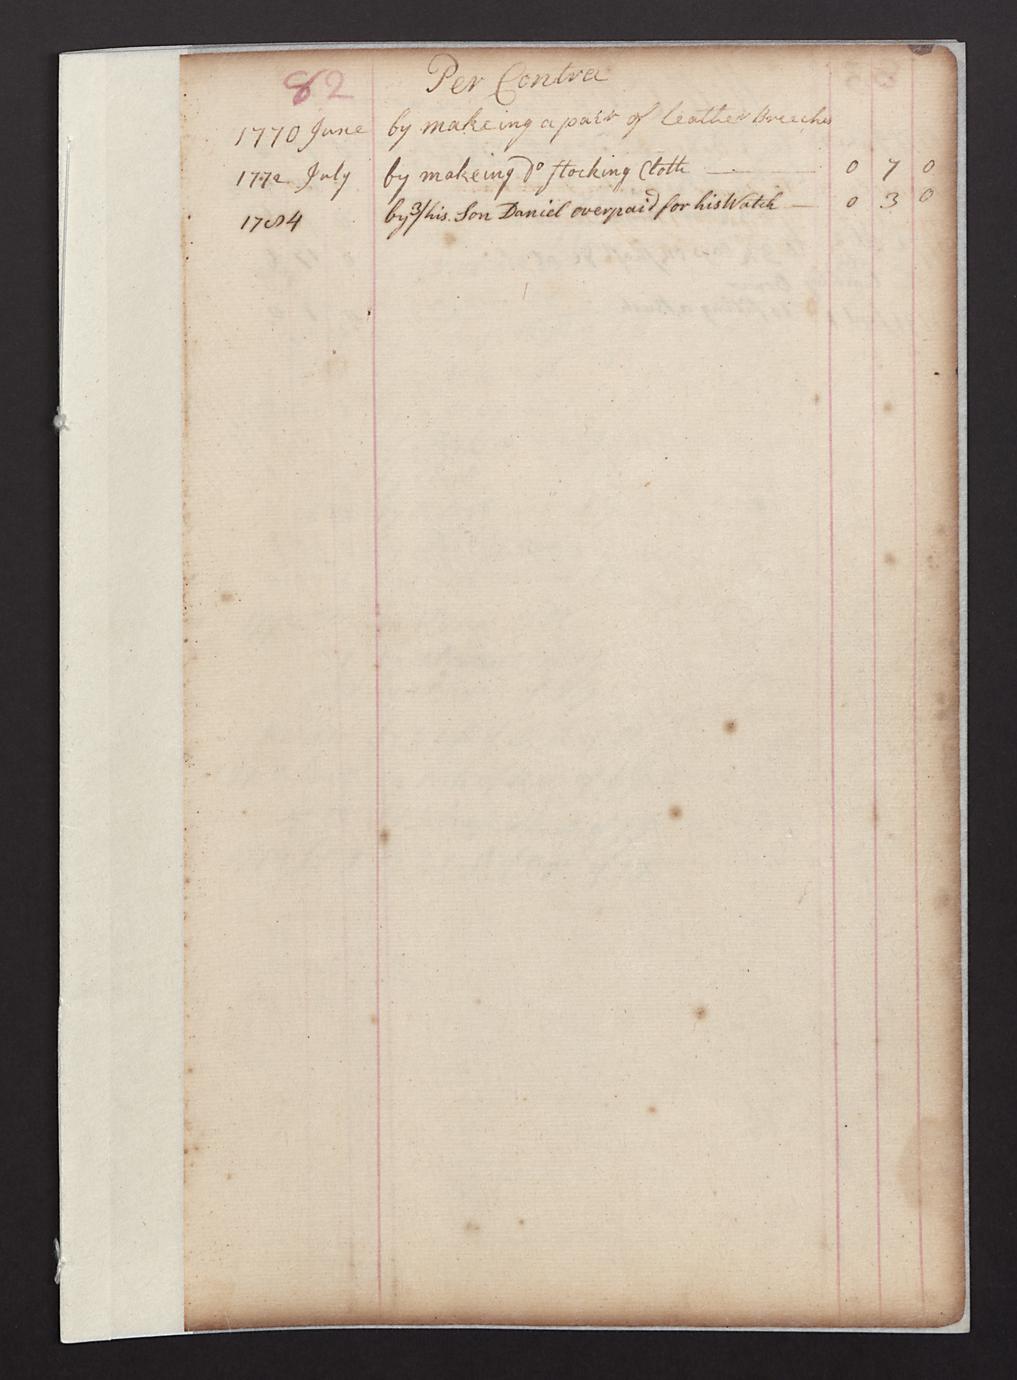 82 Per Contra
1770 June by makeing a pair of Leather Breeches
1772 July by makeing Do stocking Cloth 0 7 0
1784 by 3/ his Son Daniel overpaid for his Watch 0 3 0